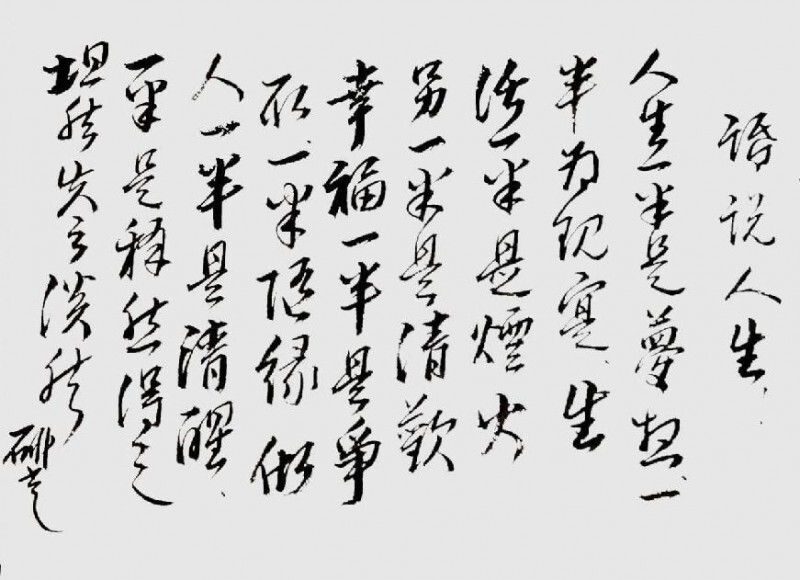 说人生
人生一半是夢想一
半为现寔生
活一半是煙火
另一半是清歡
幸福一半是爭
取一半随缘做
人一半是清醒
一半是释然得之
坦然失之淡然